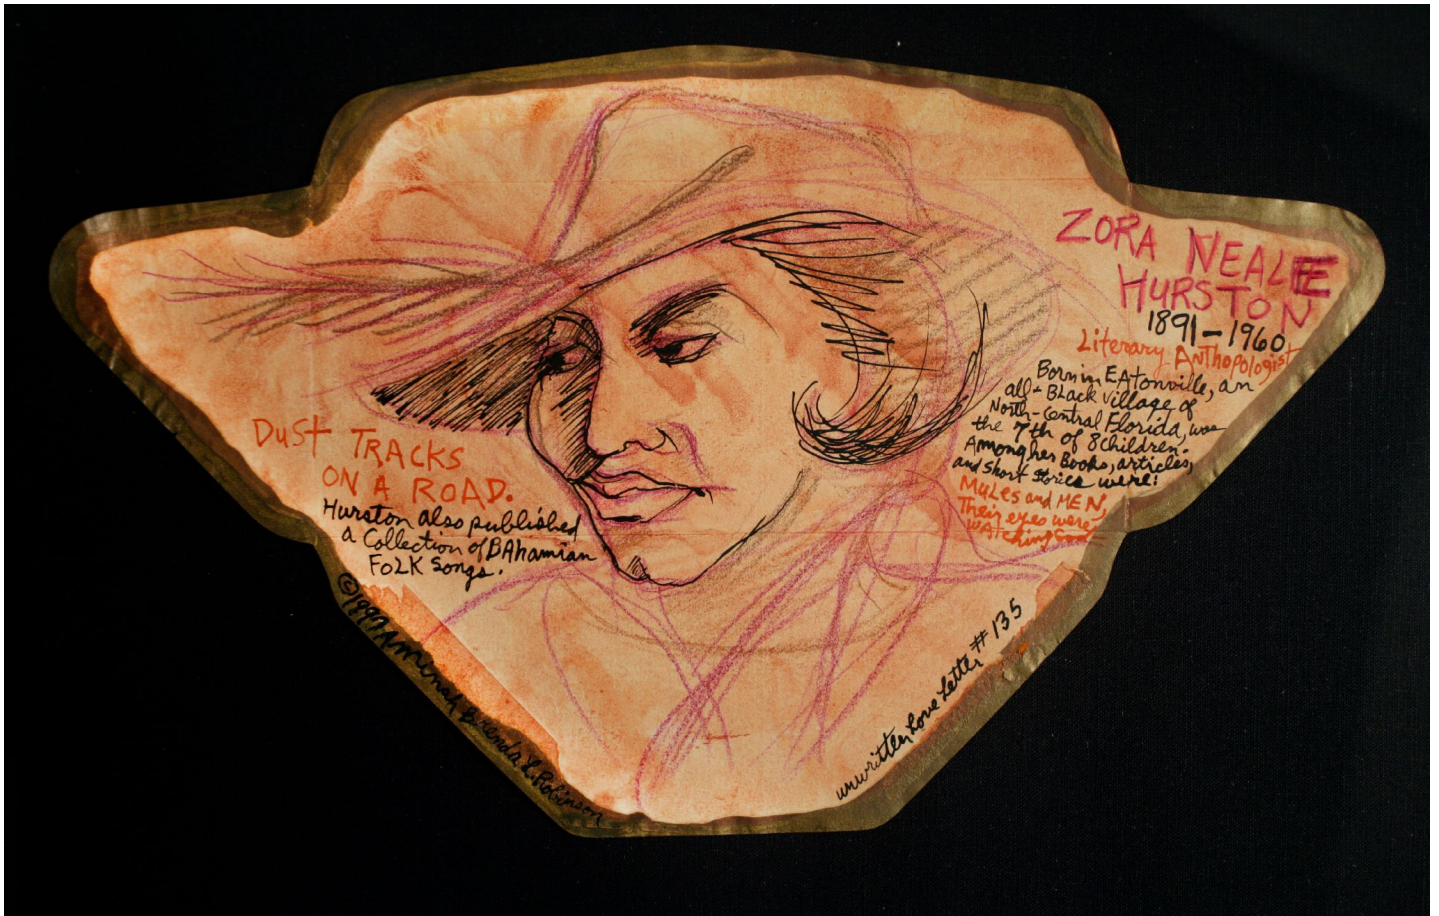 ZORA NEALE
HURSTON
1891-1960
Literary Anthopologist
Born in EATonville, an
all-BLack village of
North-Central Florida, was
the 7th of 8 children.
Among her Books, articles,
and short stories were:
MULes and MEN,
Their eyes were
WATching God
DUST TRACKS
ON A ROAD.
Hurston also published
a Collection of BAhamian
FOLK Songs.
©1997 Aminah Brenda L. Robinson
unwritten Love Letter #135